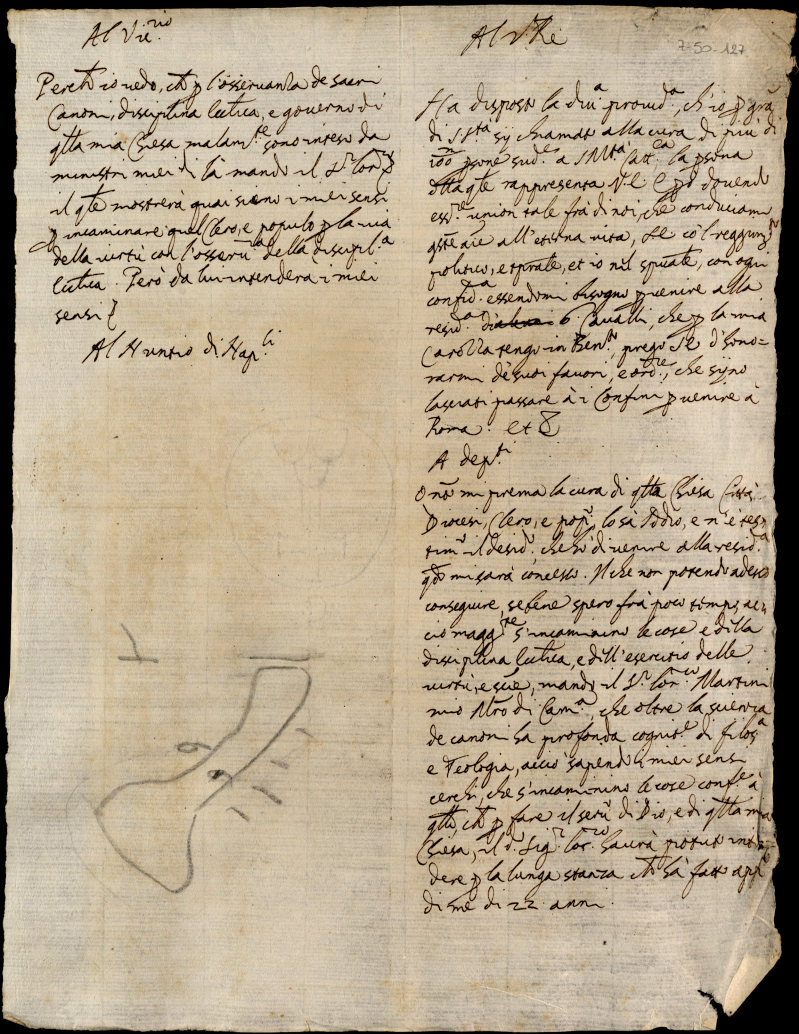 Al Vic.rio
Perche io vedo, ch p l'osservanza de sacri
Canoni, disciplina Ecctica, e governo di
qtta mia Chiesa malam.te sono inteso da
ministri miei di là mando il S.r Lor.zo
il qle mostrerà quai siano i miei sensi
p incaminare quel Clero, e populo p la via
della virtù con l'osseru.a della discipl.a
Ecctica. Però da lui intenderà i miei
sensi
Al Nuntio di Nap.li
Al V Re
7-50-127
Ha disposto la diu.a prouid.a, ch'io p gra
di S S.ta sij chiamato alla cura di più di
100 psone sud.e a S M.tà Catt.ca la psona
della qle rappresenta V. E. E pò dovendo
ess.re union tale frà di noi, che conduciamo
qste aie all'eterna vita, Le col reggim.to
politico, e tprale, et io nel spuale, con ogni
confid.a essendomi bisogno p venire alla
resid.a 6 Cavalli, che p la mia
Carozza tengo in Ben.to, prego V E d'hono-
rarmi de suoi favori, e ord.re, che sijno
lasciati passare à i Confini p venire à
Roma. et
A dep.ti
O nto mi prema la cura di qtta Chiesa Città,
Diocesi, Clero, e pop.o, lo sà Iddio, e n'è tes-
tim.o il desid.o che hò di venire alla resid.a
qdo mi sarà concesso. Il che non potendo adesso
conseguire, se bene spero frà poco tempo, ac-
ciò magg.te s'incaminino le cose e della
disciplina Ecctica, e dell'esercitio delle
virtù, e scie, mando il S.r Lor.zo Martini
mio Mro di Cam.a, che oltre la scienza
de canoni ha profonda cognit.e di filos.a
e Teologia, acciò sapendo i miei sensi
cerchi, che s'incaminino le cose conf.e à
qlli, ch p fare il seru.o di Dio, e di qtta mia
Chiesa, il d.o Sig.r Lor.zo haurà potuto inten
dere p la lunga stanza ch hà fatto app.o
di me di 22 anni.